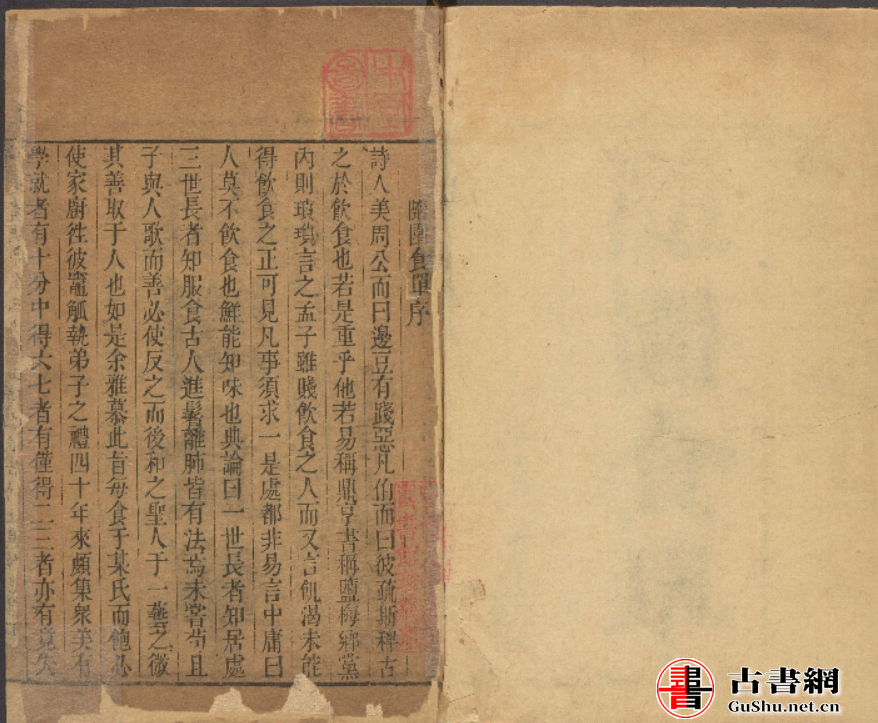 隨園食單序
詩人美周公而曰籩豆有踐惡凡伯而曰彼疏斯稗古
之於飲食也若是重乎他若易稱鼎亨書稱鹽梅鄉黨
內則瑣瑣言之孟子雖賤飲食之人而又言飢渴未能
得飲食之正可見凡事須求一是處都非易言中庸曰
人莫不飲食也鮮能知味也典論曰一世長者知居處
三世長者知服食古人進鬐離肺皆有法焉未嘗苟且
子與人歌而善必使反之而後和之聖人于一藝之微
其善取于人也如是余雅慕此旨每食于某氏而飽必
使家廚往彼竈觚執弟子之禮四十年來頗集衆美有
學就者有十分中得六七者有僅得二三者亦有竟失
古書網
GuShu.net.cn